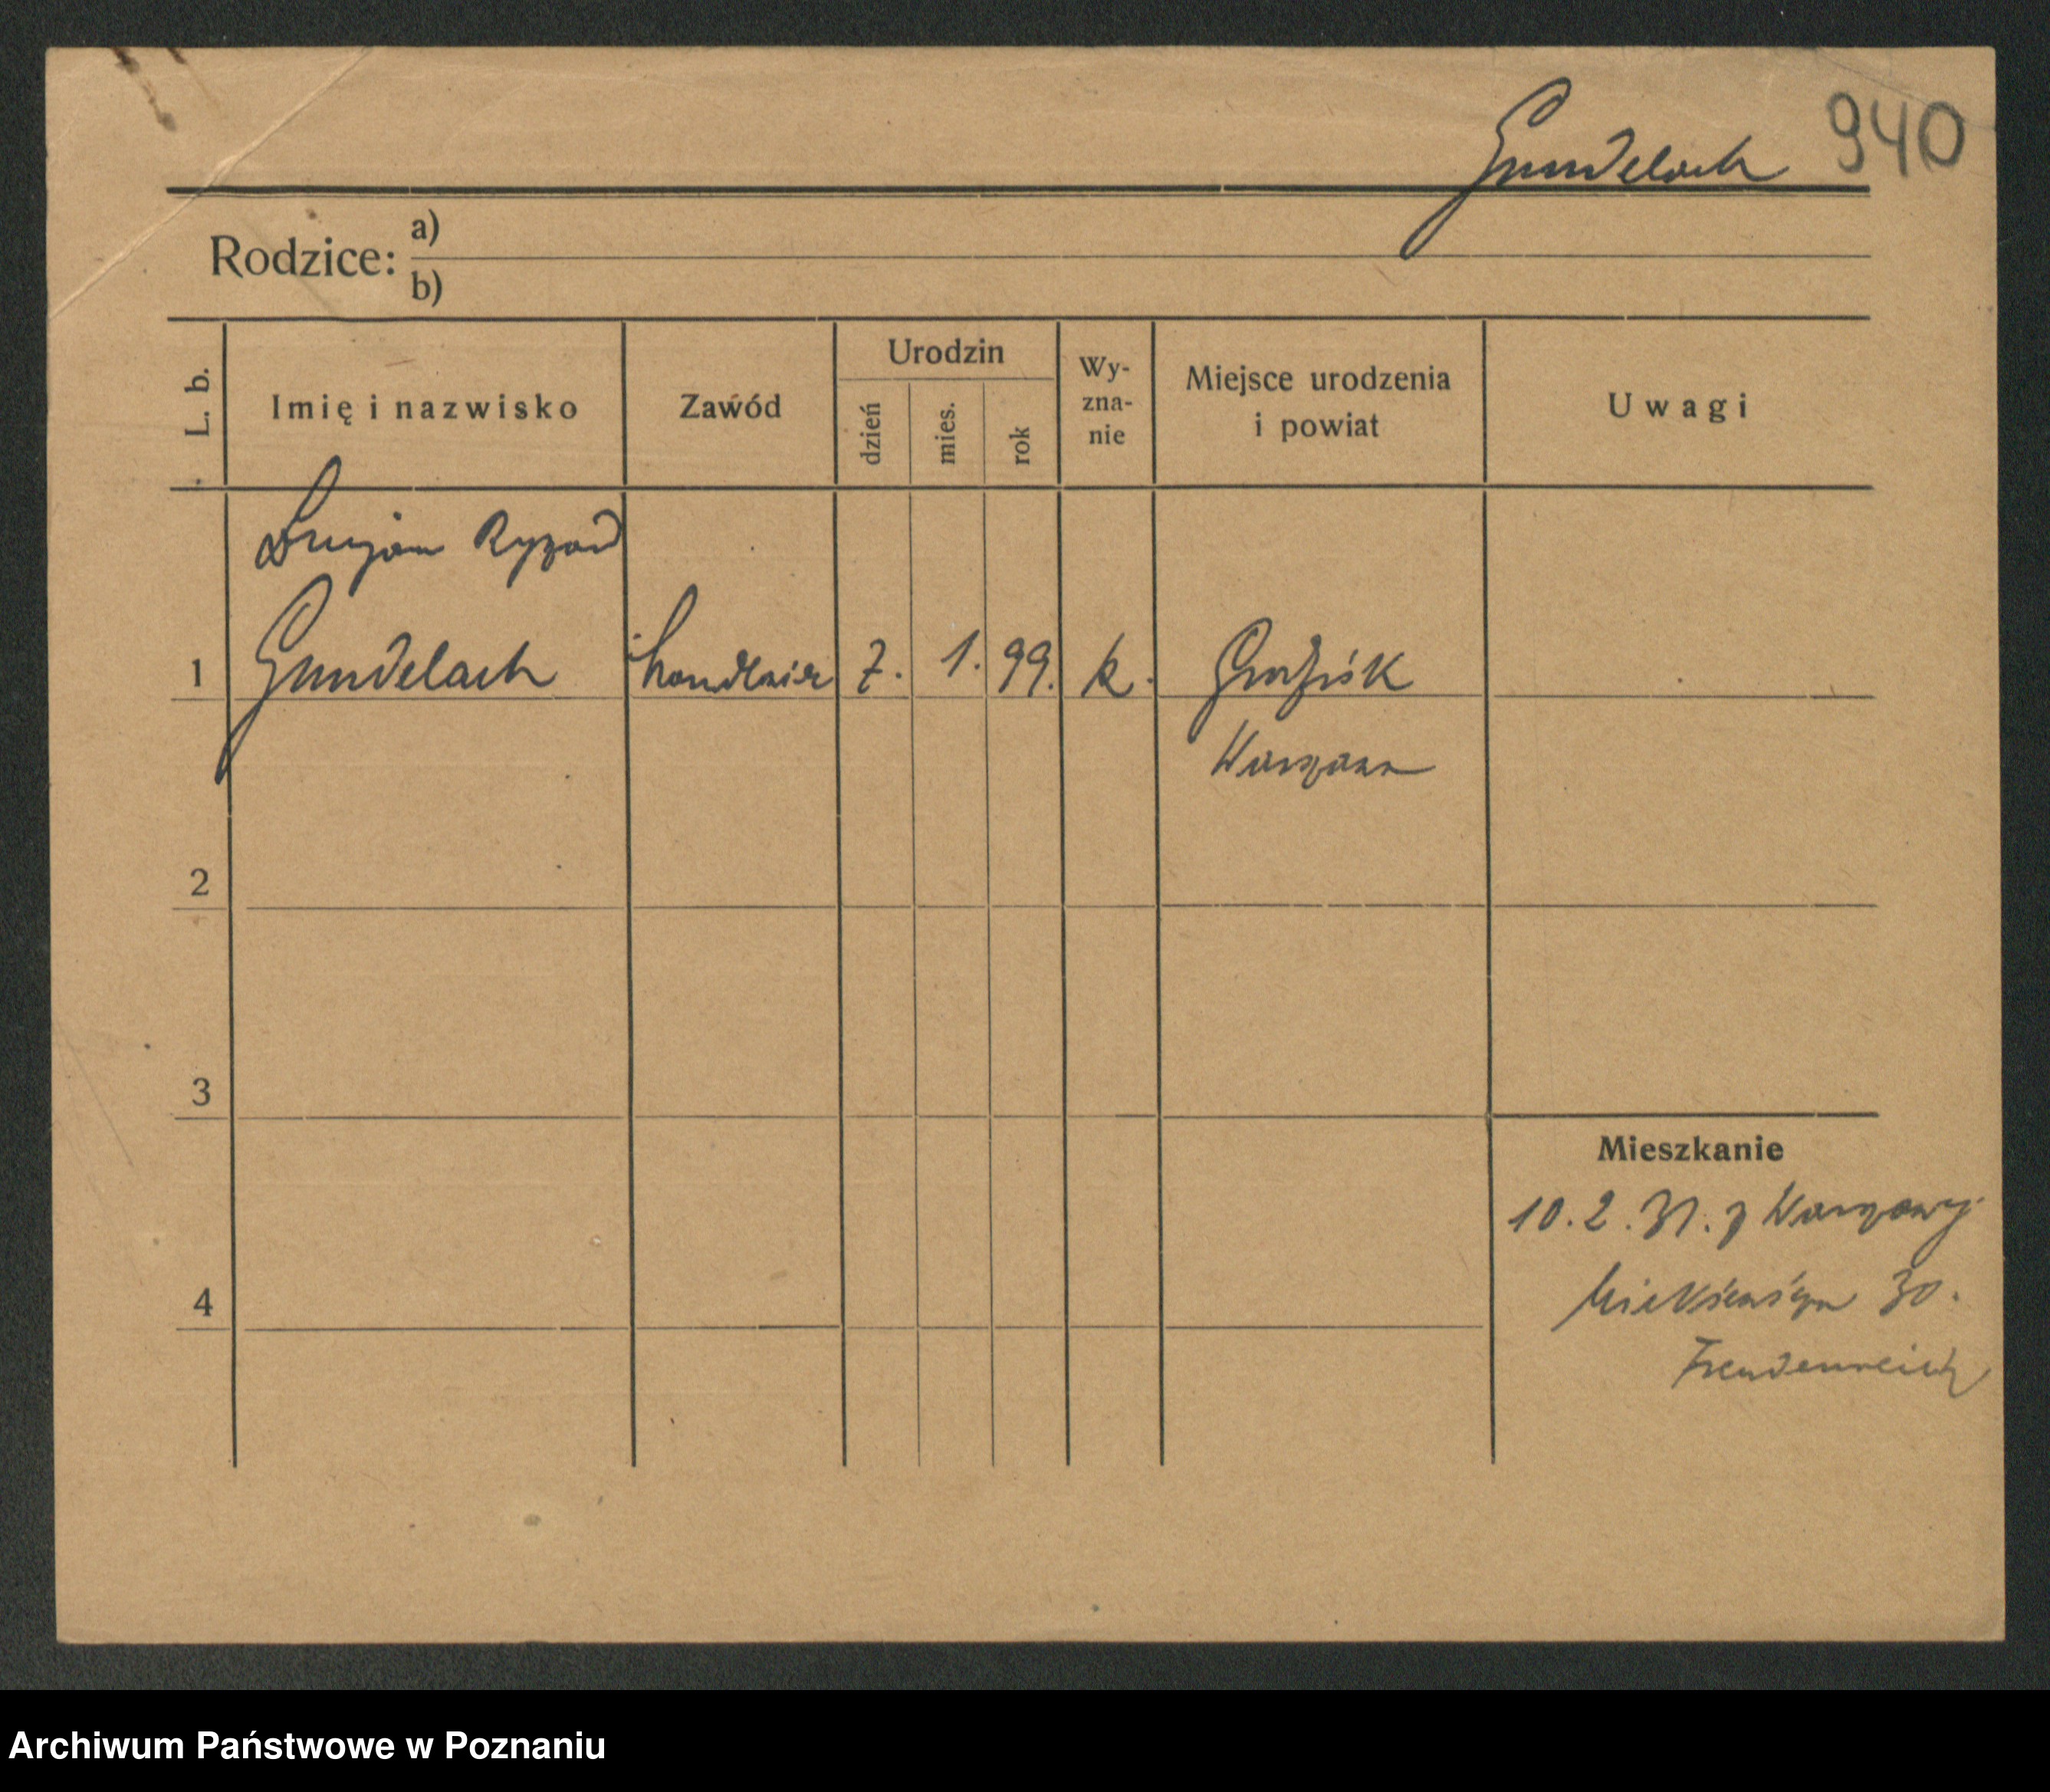 Gundelach 940
Rodzice: a)
b)
L. b. Imię i nazwisko Zawód Urodzin dzień mies. rok Wy-zna-nie Miejsce urodzenia i powiat Uwagi
Lucjan Ryszard
1 Gundelach 7. 1. 99. k. Grodzisk
Warszawa
2
3
Mieszkanie
10.2.31. z Warszawy
4 30.
Freudenreich
Archiwum Państwowe w Poznaniu